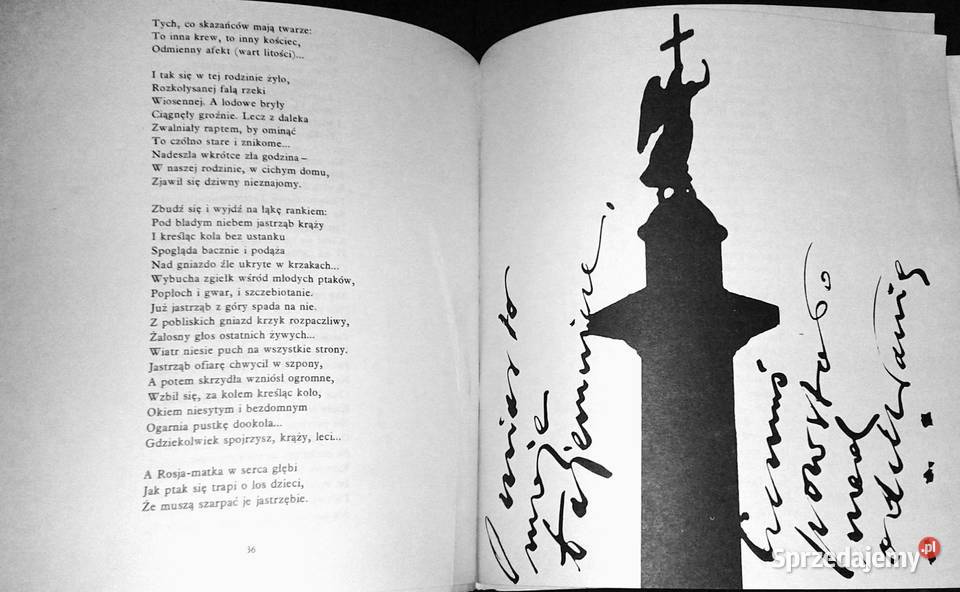 Tych, co skazańców mają twarze:
To inna krew, to inny kościec,
Odmienny afekt (wart litości)...
I tak się w tej rodzinie żyło,
Rozkołysanej falą rzeki
Wiosennej. A lodowe bryły
Ciągnęły groźnie. Lecz z daleka
Zwalniały raptem, by ominąć
To czółno stare i znikome...
Nadeszła wkrótce zła godzina –
W naszej rodzinie, w cichym domu,
Zjawił się dziwny nieznajomy.
Zbudź się i wyjdź na łąkę rankiem:
Pod bladym niebem jastrząb krąży
I kreśląc koła bez ustanku
Spogląda bacznie i podąża
Nad gniazdo źle ukryte w krzakach...
Wybucha zgiełk wśród młodych ptaków,
Popłoch i gwar, i szczebiotanie.
Już jastrząb z góry spada na nie.
Z pobliskich gniazd krzyk rozpaczliwy,
Żałosny głos ostatnich żywych...
Wiatr niesie puch na wszystkie strony.
Jastrząb ofiarę chwycił w szpony,
A potem skrzydła wzniósł ogromne,
Wzbił się, za kołem kreśląc koło,
Okiem niesytym i bezdomnym
Ogarnia pustkę dookoła...
Gdziekolwiek spojrzysz, krąży, leci...
A Rosja-matka w serca głębi
Jak ptak się trapi o los dzieci,
Że muszą szarpać je jastrzębie.
36
moje
tajemnice.
Sprzedajemy.pl